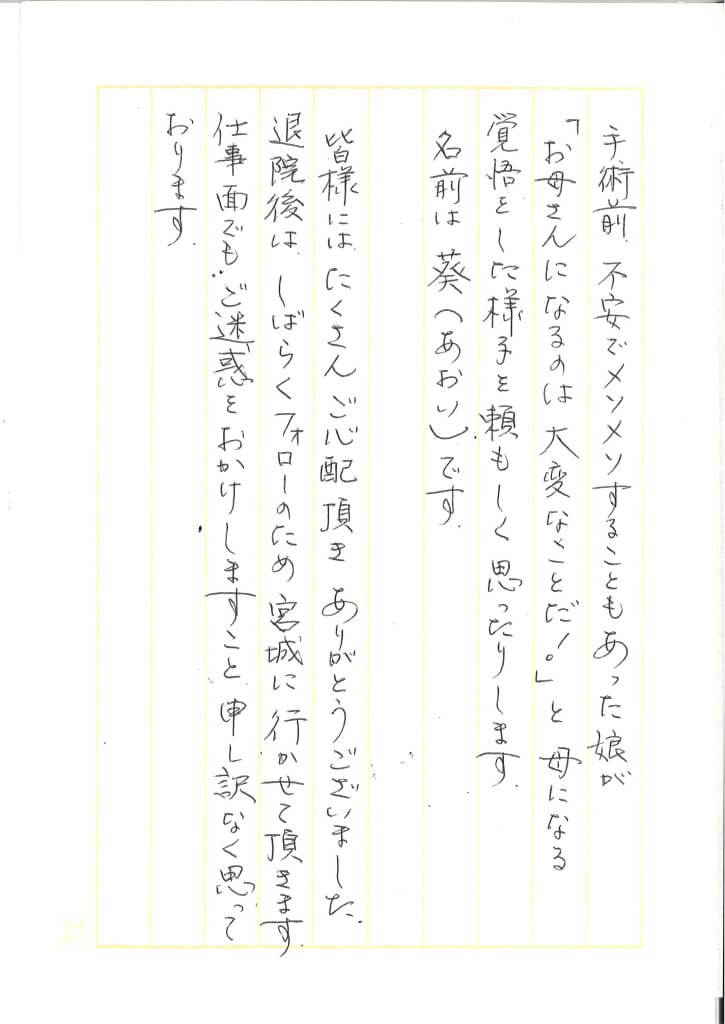 手術前 不安でメソメソすることもあった娘が
「お母さんになるのは 大変なことだ!。」と 母になる
覚悟をした様子を 頼もしく 思ったりします.
名前は 葵(あおい)です.
皆様には たくさん ご心配頂き ありがとうございました.
退院後は しばらくフォローのため 宮城に 行かせて頂きます.
仕事面でも ご迷惑を おかけしますこと 申し訳なく思って
おります.